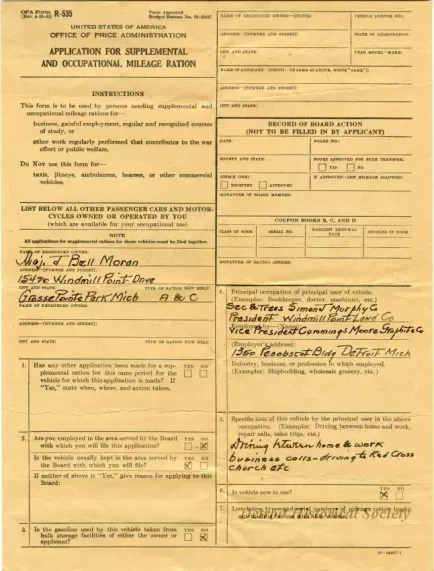 OPA Form R-535
Form Approved
UNITED STATES OF AMERICA
OFFICE OF PRICE ADMINISTRATION
APPLICATION FOR SUPPLEMENTAL
AND OCCUPATIONAL MILEAGE RATION
INSTRUCTIONS
This form is to be used by persons needing supplemental and
occupational mileage rations for—
business, gainful employment, regular and recognized courses
of study, or
other work regularly performed that contributes to the war
effort or public welfare.
Do NOT use this form for—
taxis, jitneys, ambulances, hearses, or other commercial
vehicles.
LIST BELOW ALL OTHER PASSENGER CARS AND MOTOR-
CYCLES OWNED OR OPERATED BY YOU
(which are available for your occupational use)
NOTE
All applications for supplemental rations for these vehicles must be filed together.
NAME OF REGISTERED OWNER:
Maj. J Bell Moran
ADDRESS—(NUMBER AND STREET):
15420 Windmill Point Drive
CITY AND STATE: TYPE OF RATION NOW HELD:
Grosse Pointe Park Mich A & C
NAME OF REGISTERED OWNER:
ADDRESS—(NUMBER AND STREET):
CITY AND STATE: TYPE OF RATION NOW HELD:
1. Has any other application been made for a sup- YES NO
plemental ration for this same period for the
vehicle for which this application is made? If
"Yes," state when, where, and action taken.
2. Are you employed in the area served by the Board YES NO
with which you will file this application?
Is the vehicle usually kept in the area served by YES NO
the Board with which you will file?
If neither of above is "Yes," give reason for applying to this
Board:
3. Is the gasoline used by this vehicle taken from YES NO
bulk storage facilities of either the owner or
applicant?
NAME OF REGISTERED OWNER—(PRINT):
VEHICLE LICENSE NO.:
ADDRESS—(NUMBER AND STREET):
STATE OF REGISTRATION:
CITY AND STATE:
YEAR MODEL—MAKE:
NAME OF APPLICANT—(PRINT)—(IF SAME AS ABOVE, WRITE "SAME"):
ADDRESS—(NUMBER AND STREET):
CITY AND STATE:
RECORD OF BOARD ACTION
(NOT TO BE FILLED IN BY APPLICANT)
DATE:
BOARD NO.:
COUNTY AND STATE:
BOOKS APPROVED FOR BULK TRANSFER:
YES NO
CHECK ONE:
REJECTED APPROVED
IF APPROVED—LIST MILEAGE ALLOWED:
SIGNATURE OF BOARD MEMBER:
COUPON BOOKS B, C, AND D
CLASS OF BOOK
SERIAL NO.
EARLIEST RENEWAL DATE
COUPONS IN BOOK
SIGNATURE OF ISSUING OFFICER:
4. Principal occupation of principal user of vehicle.
(Examples: Bookkeeper, doctor, machinist, etc.)
Sec & Treas Simon J Murphy Co
President Windmill Point Land Co
Employed by—(Name):
Vice President Cummings Moore Graphite Co
(Employer's address):
1350 Penobscot Bldg Detroit Mich
Industry, business, or profession in which employed.
(Examples: Shipbuilding, wholesale grocery, etc.)
5. Specific uses of this vehicle by the principal user in the above
occupation. (Examples: Driving between home and work,
repair calls, sales trips, etc.)
Driving between home & work
business calls - driving to Red Cross
church etc
6. Is vehicle now in use? YES NO
7.
Detroit Historical Society